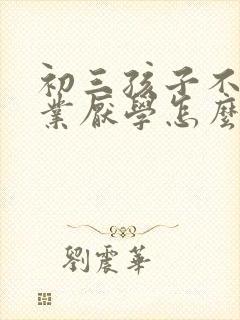 初三孩子不
業厭學怎麼
劉震華